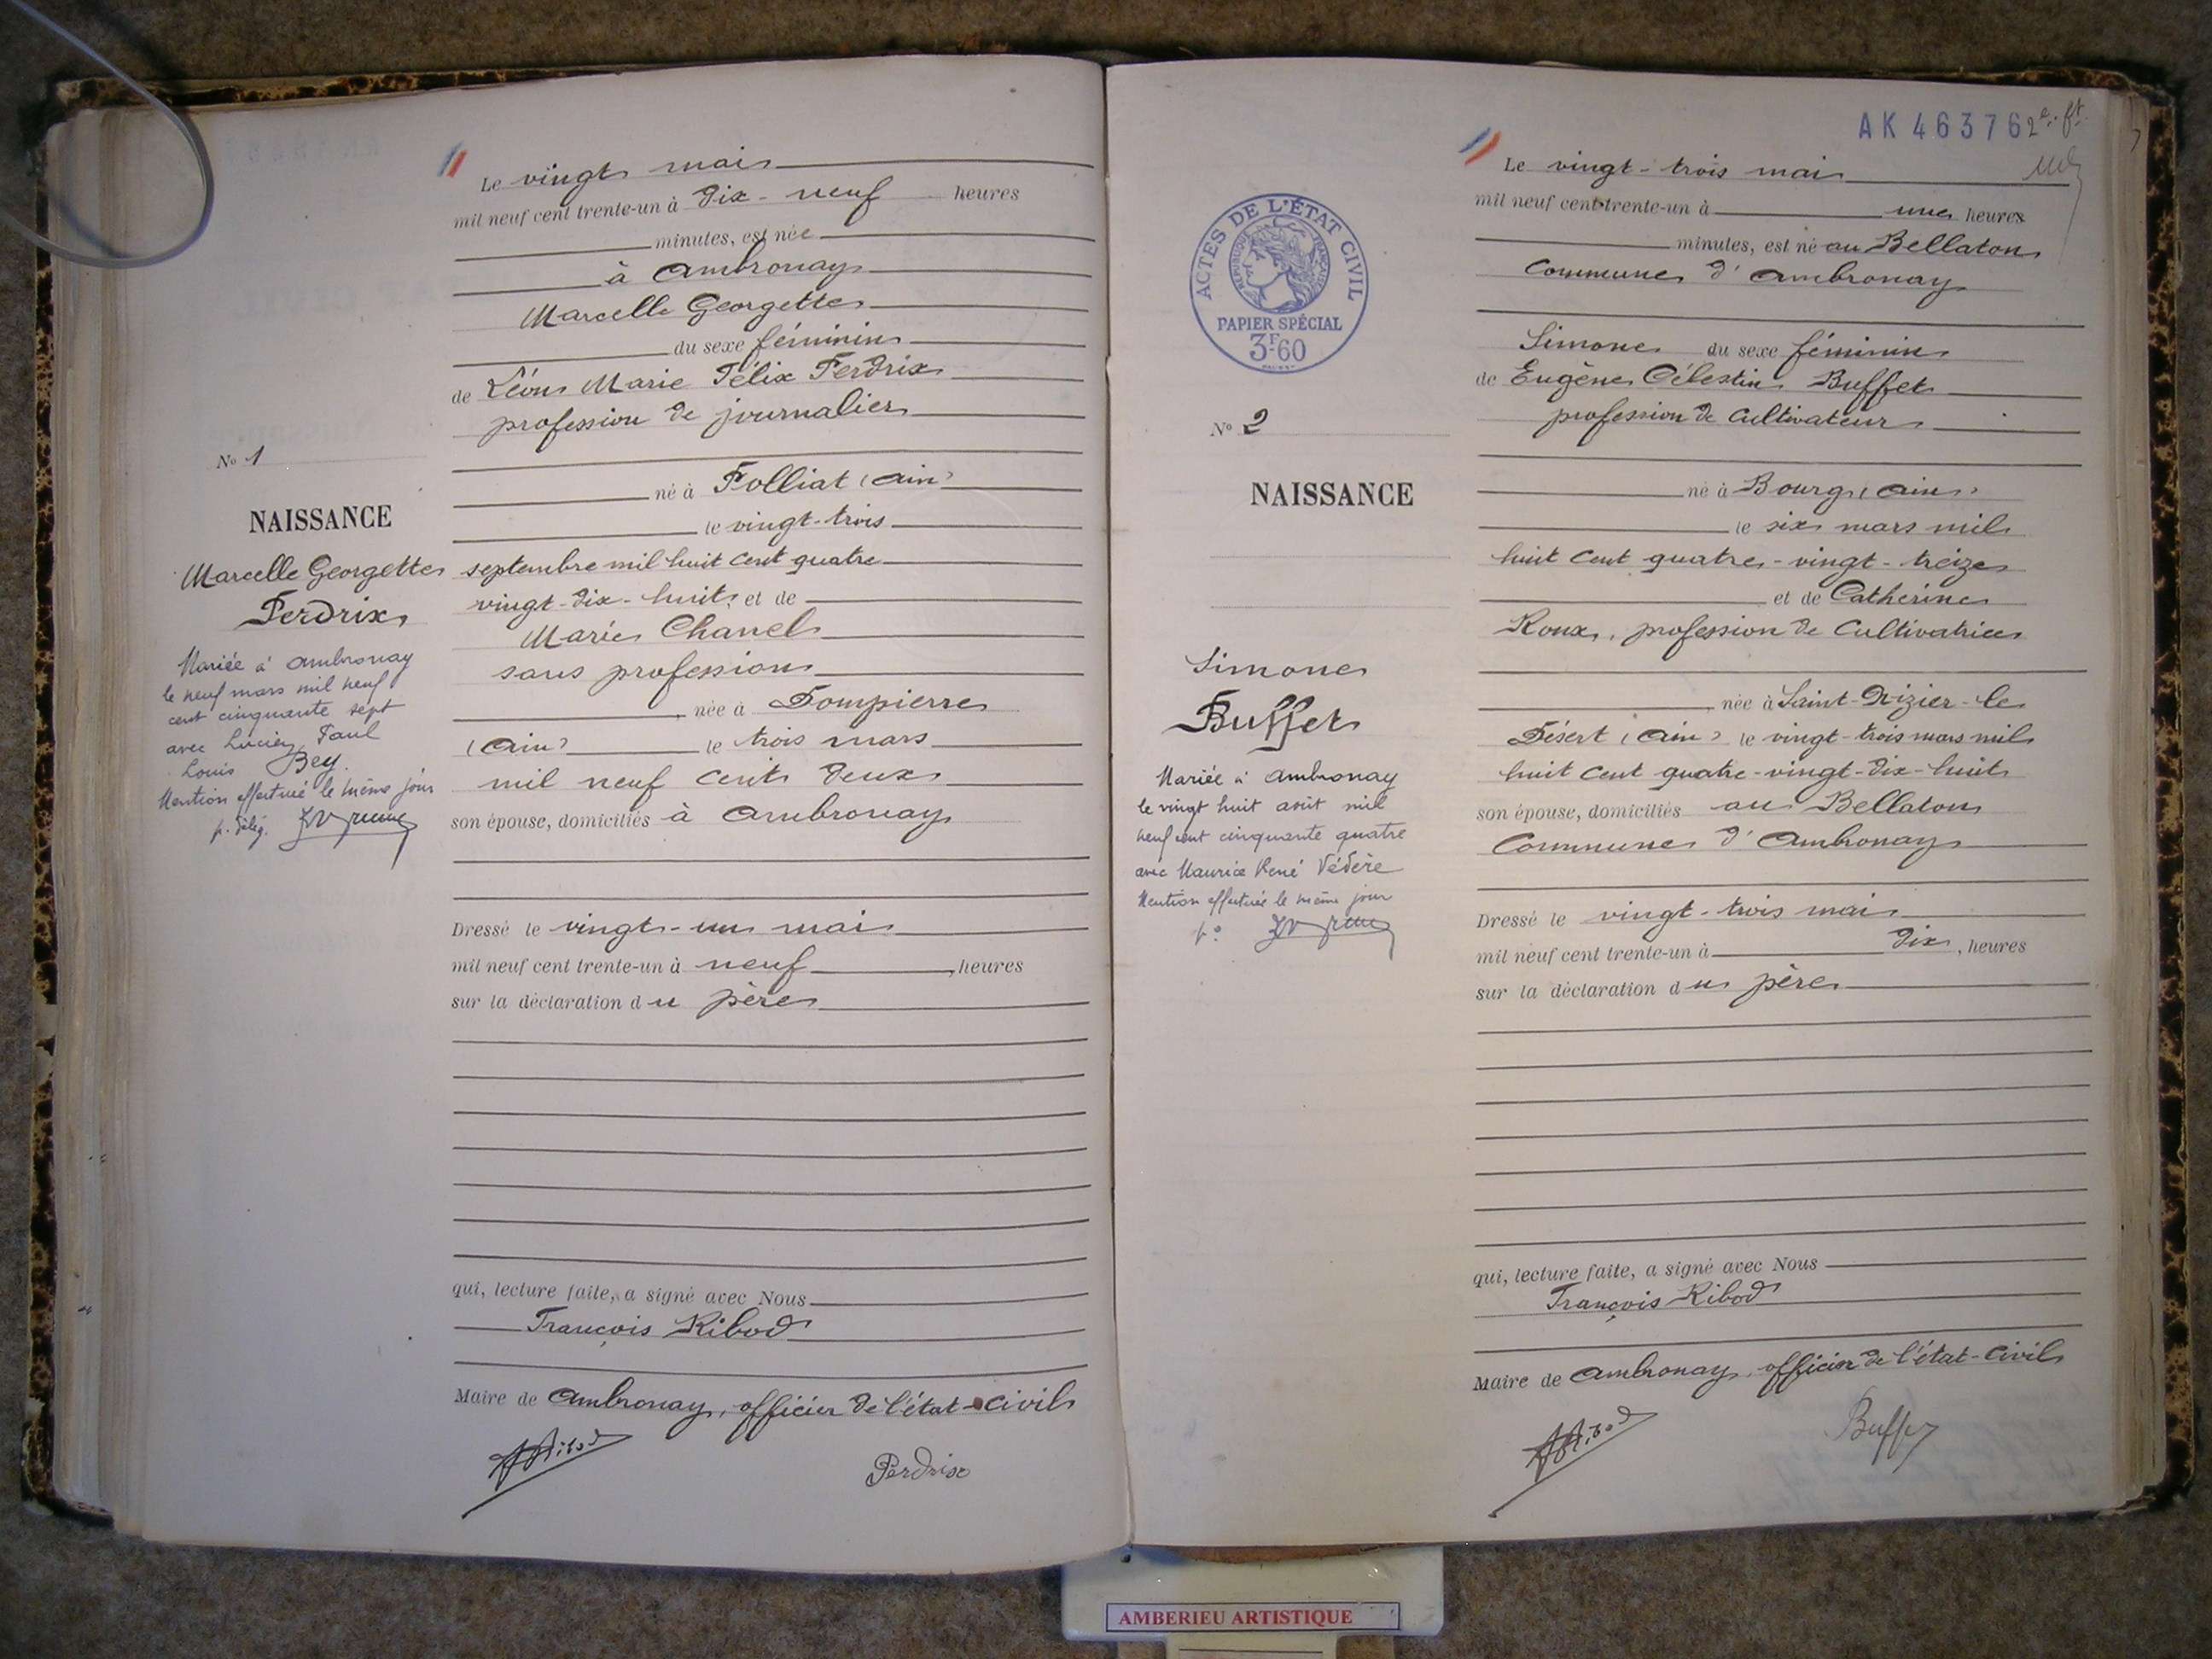 Le vingt mai
mil neuf cent trente-un à dix-neuf heures
minutes, est née
à Ambronay
Marcelle Georgette
du sexe féminin
de Léon Marie Félix Perdrix
profession de journalier
né à Polliat (Ain)
le vingt-trois
septembre mil huit cent quatre
vingt-dix-huit, et de
Marie Chanel
sans profession
née à Dompierre
(Ain) le trois mars
mil neuf cent deux
son épouse, domiciliés à Ambronay
Dressé le vingt-un mai
mil neuf cent trente-un à neuf , heures
sur la déclaration du père
qui, lecture faite, a signé avec Nous
François Ribod
Maire de Ambronay, officier de l'état-civil
Perdrix
No 1
NAISSANCE
Marcelle Georgette
Perdrix
Mariée à Ambronay
le neuf mars mil neuf
cent cinquante sept
avec Lucien Paul
Louis Bey.
Mention effectuée le même jour
p. délég.
AK 46376
Le vingt-trois mai
mil neuf cent trente-un à une heures
minutes, est né au Bellaton
Commune d'Ambronay
Simone du sexe féminin
de Eugène Célestin Buffet
profession de Cultivateur
né à Bourg (Ain)
le six mars mil
huit cent quatre-vingt-treize
et de Catherine
Roux, profession de Cultivatrice
née à Saint-Nizier-le
Désert (Ain) le vingt-trois mars mil
huit cent quatre-vingt-dix-huit
son épouse, domiciliés au Bellaton
Commune d'Ambronay
Dressé le vingt-trois mai
mil neuf cent trente-un à dix, heures
sur la déclaration du père
qui, lecture faite, a signé avec Nous
François Ribod
Maire de Ambronay, officier de l'état-civil
Buffet
ACTES DE L'ÉTAT CIVIL
RÉPUBLIQUE FRANÇAISE
PAPIER SPÉCIAL
3F60
No 2
NAISSANCE
Simone
Buffet
Mariée à Ambronay
le vingt huit août mil
neuf cent cinquante quatre
avec Maurice René Védère
Mention effectuée le même jour
AMBERIEU ARTISTIQUE